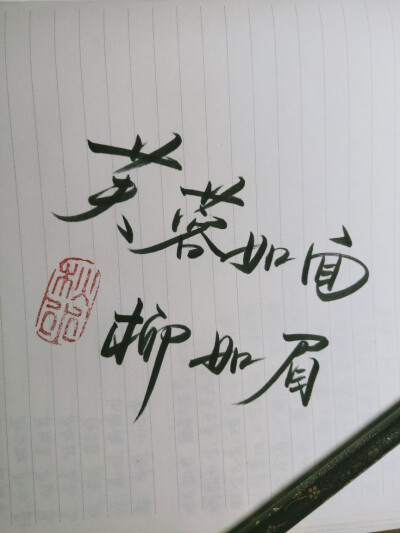 芙蓉如面
柳如眉